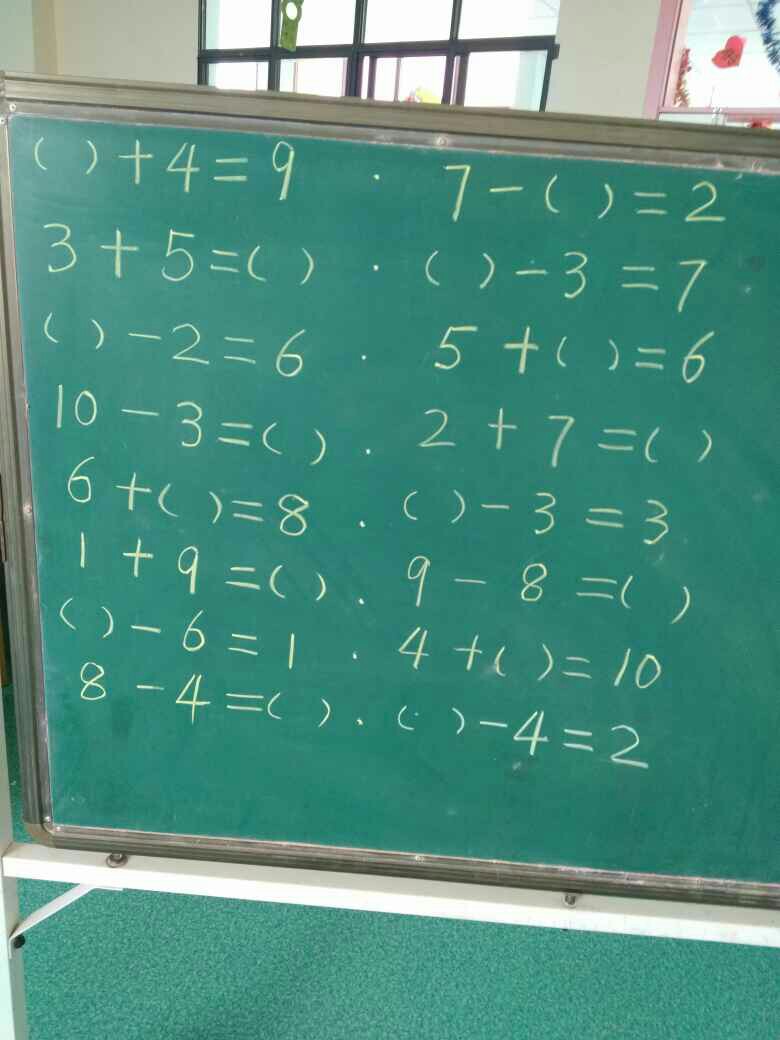 ( ) + 4 = 9 · 7 - ( ) = 2
3 + 5 = ( ) · ( ) - 3 = 7
( ) - 2 = 6 · 5 + ( ) = 6
10 - 3 = ( ) · 2 + 7 = ( )
6 + ( ) = 8 · ( ) - 3 = 3
1 + 9 = ( ) · 9 - 8 = ( )
( ) - 6 = 1 · 4 + ( ) = 10
8 - 4 = ( ) · ( ) - 4 = 2